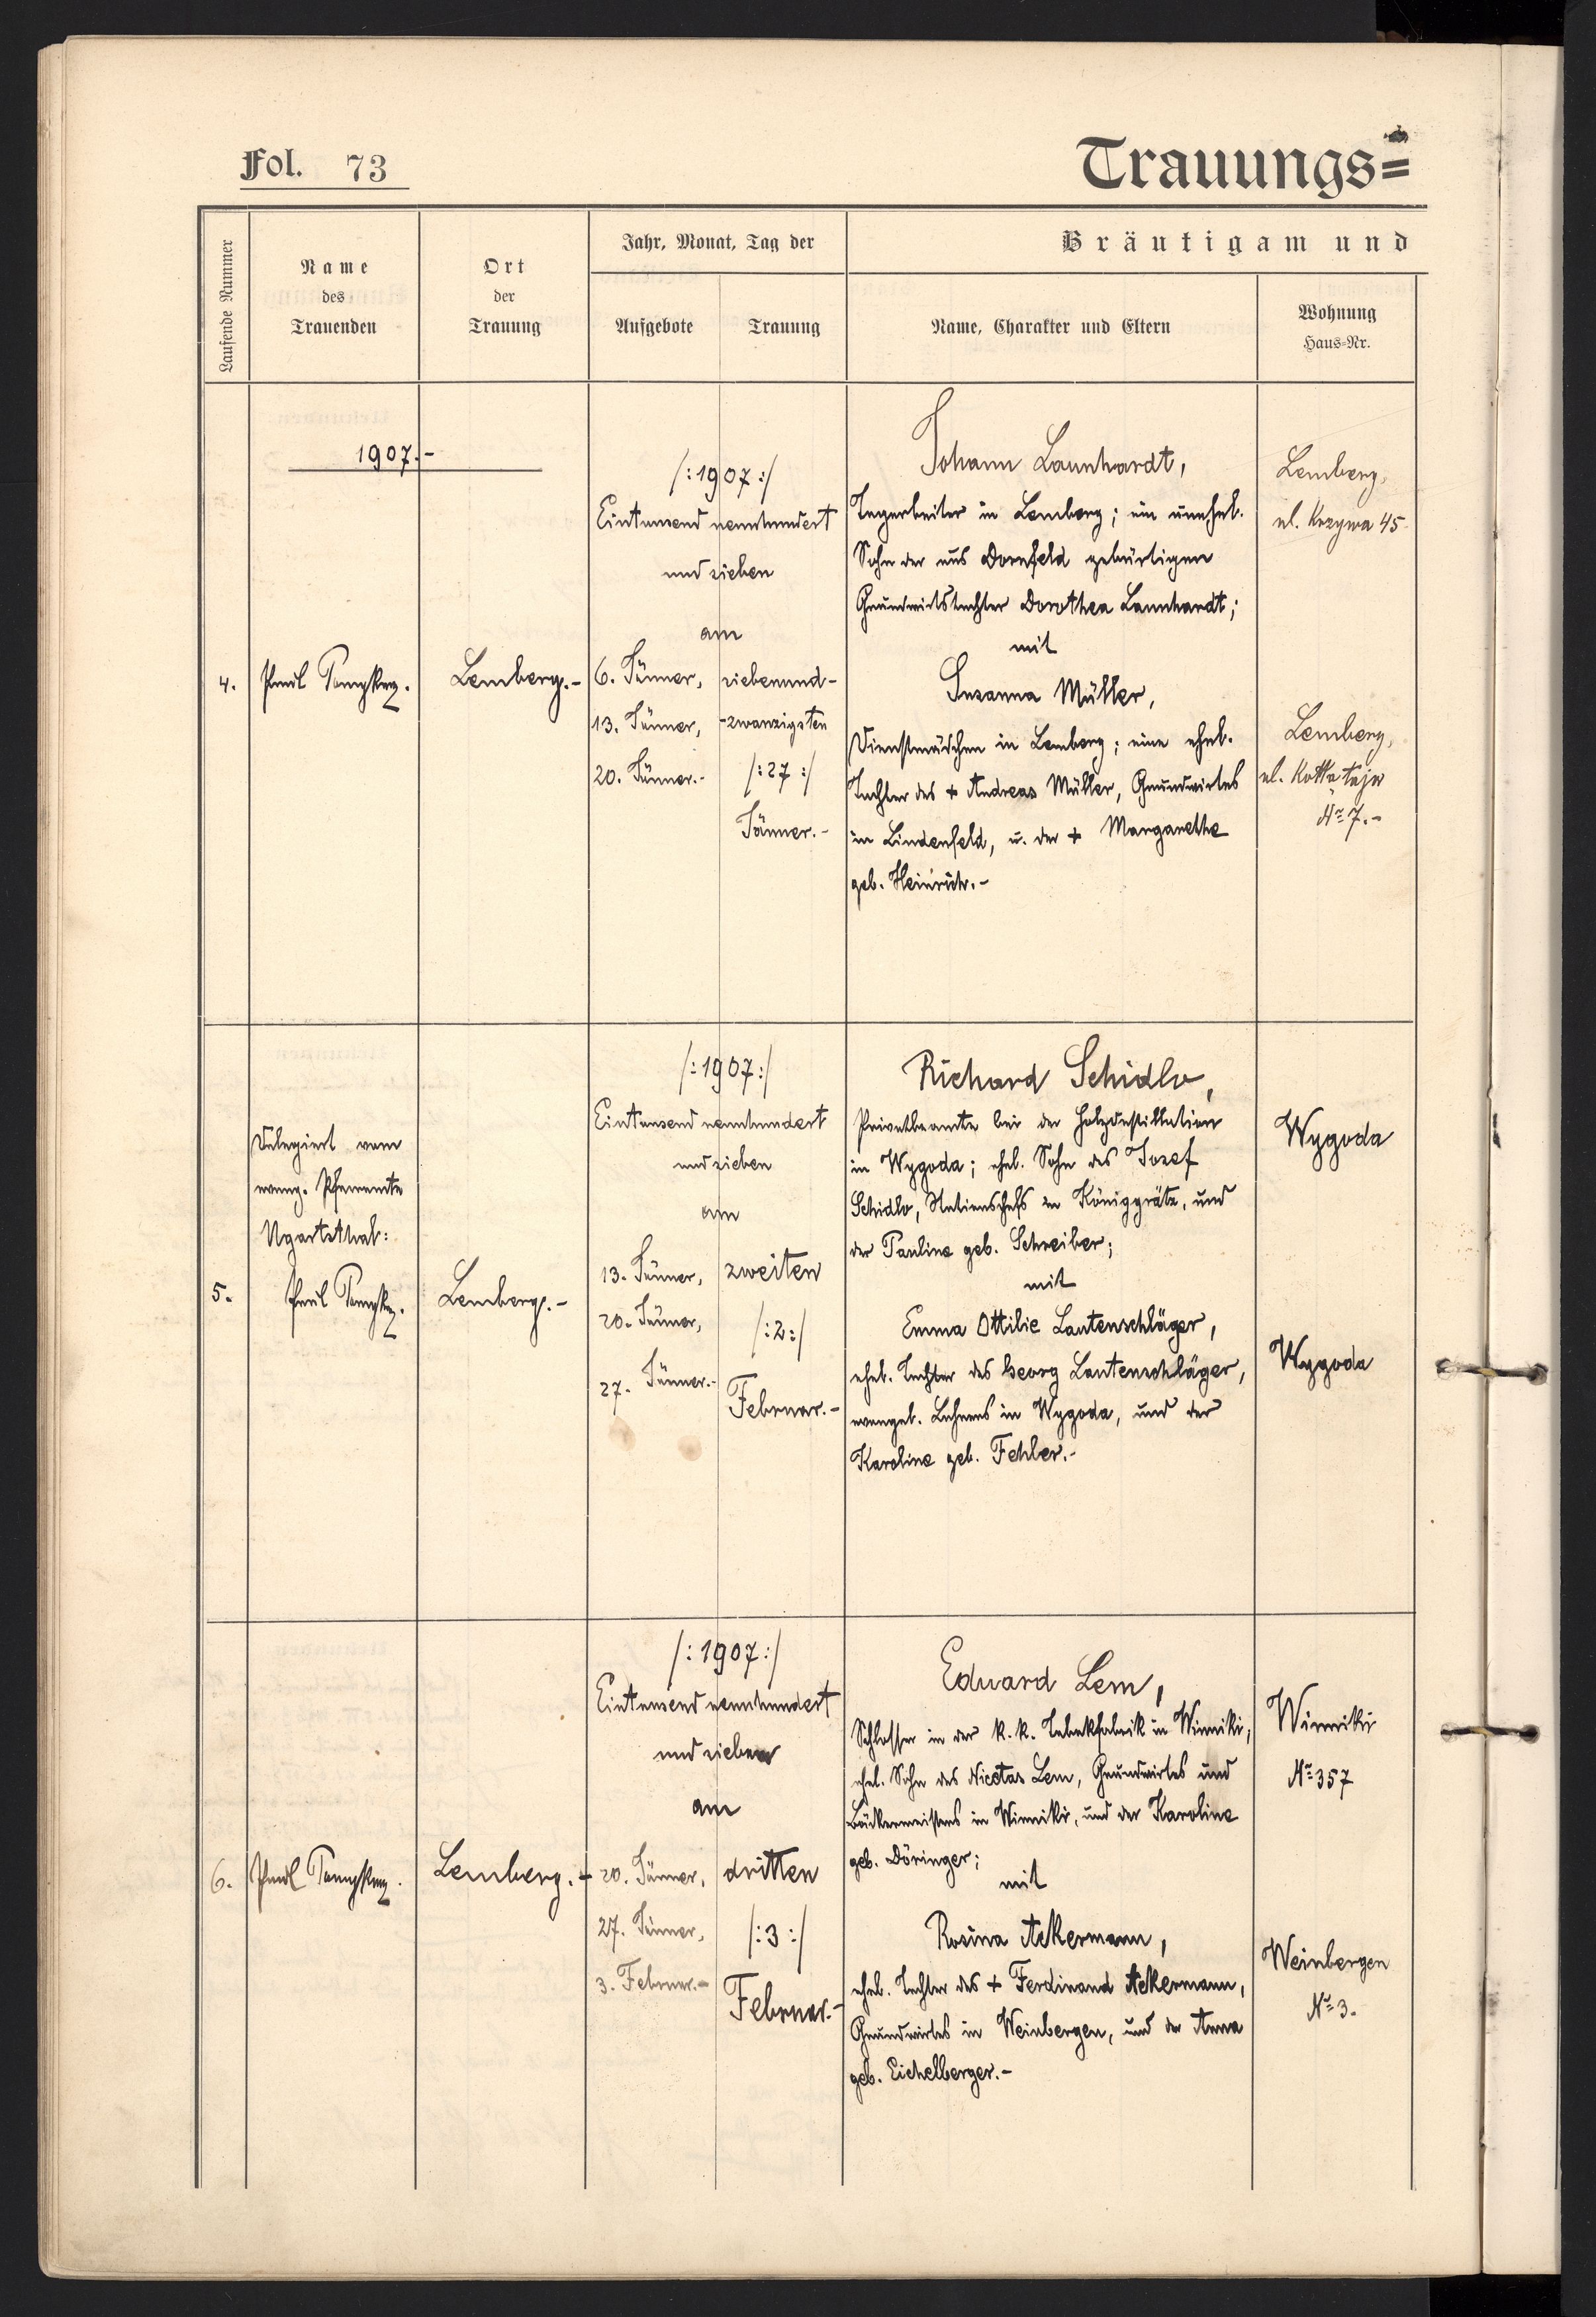 Fol. 73
Trauungs=
Laufende Nummer
Name
des
Trauenden
Ort
der
Trauung
Jahr, Monat, Tag der
Aufgebote
Trauung
Bräutigam und
Name, Charakter und Eltern
Wohnung
Haus=Nr.
1907.-
4.
Paul
Lemberg.-
/:1907:/
Eintausend neunhundert
und sieben
am
6. Jänner,
13. Jänner,
20. Jänner.-
siebenund-
-zwanzigsten
/:27:/
Jänner.-
Johann Launhardt,
Tagarbeiter in Lemberg; ein unehel.
Sohn der aus Dornfeld gebürtigen
Grundwirtstochter Dorothea Launhardt;
mit
Susanna Müller,
Dienstmädchen in Lemberg; eine ehel.
Tochter des + Andreas Müller, Grundwirtes
in Lindenfeld, u. der + Margarethe
geb. Heinrich.-
Lemberg,
ul. Krzywa 45
Lemberg,
ul. Kołłątaja
No 7.-
5.
Delegiert vom
evang. Pfarramte
Ugartsthal:
Paul
Lemberg.-
/:1907:/
Eintausend neunhundert
und sieben
am
13. Jänner,
20. Jänner,
27. Jänner.-
zweiten
/:2:/
Februar.-
Richard Schidlo,
Privatbeamte bei der Holzdestillation
in Wygoda; ehel. Sohn des Josef
Schidlo, Stationschefs in Königgrätz, und
der Pauline geb. Schreiber;
mit
Emma Ottilie Lautenschläger,
ehel. Tochter des Georg Lautenschläger,
evangel. Lehrers in Wygoda, und der
Karoline geb. Fehler.-
Wygoda
Wygoda
6.
Paul
Lemberg.-
/:1907:/
Eintausend neunhundert
und sieben
am
20. Jänner,
27. Jänner,
3. Februar.-
dritten
/:3:/
Februar.-
Eduard Lem,
Schlosser in der k.k. Tabakfabrik in Winniki,
ehel. Sohn des Nicolas Lem, Grundwirtes und
Bäckermeisters in Winniki, und der Karoline
geb. Döringer;
mit
Rosina Ackermann,
ehel. Tochter des + Ferdinand Ackermann,
Grundwirtes in Weinbergen, und der Anna
geb. Eichelberger.-
Winniki
No 357
Weinbergen
No 3.